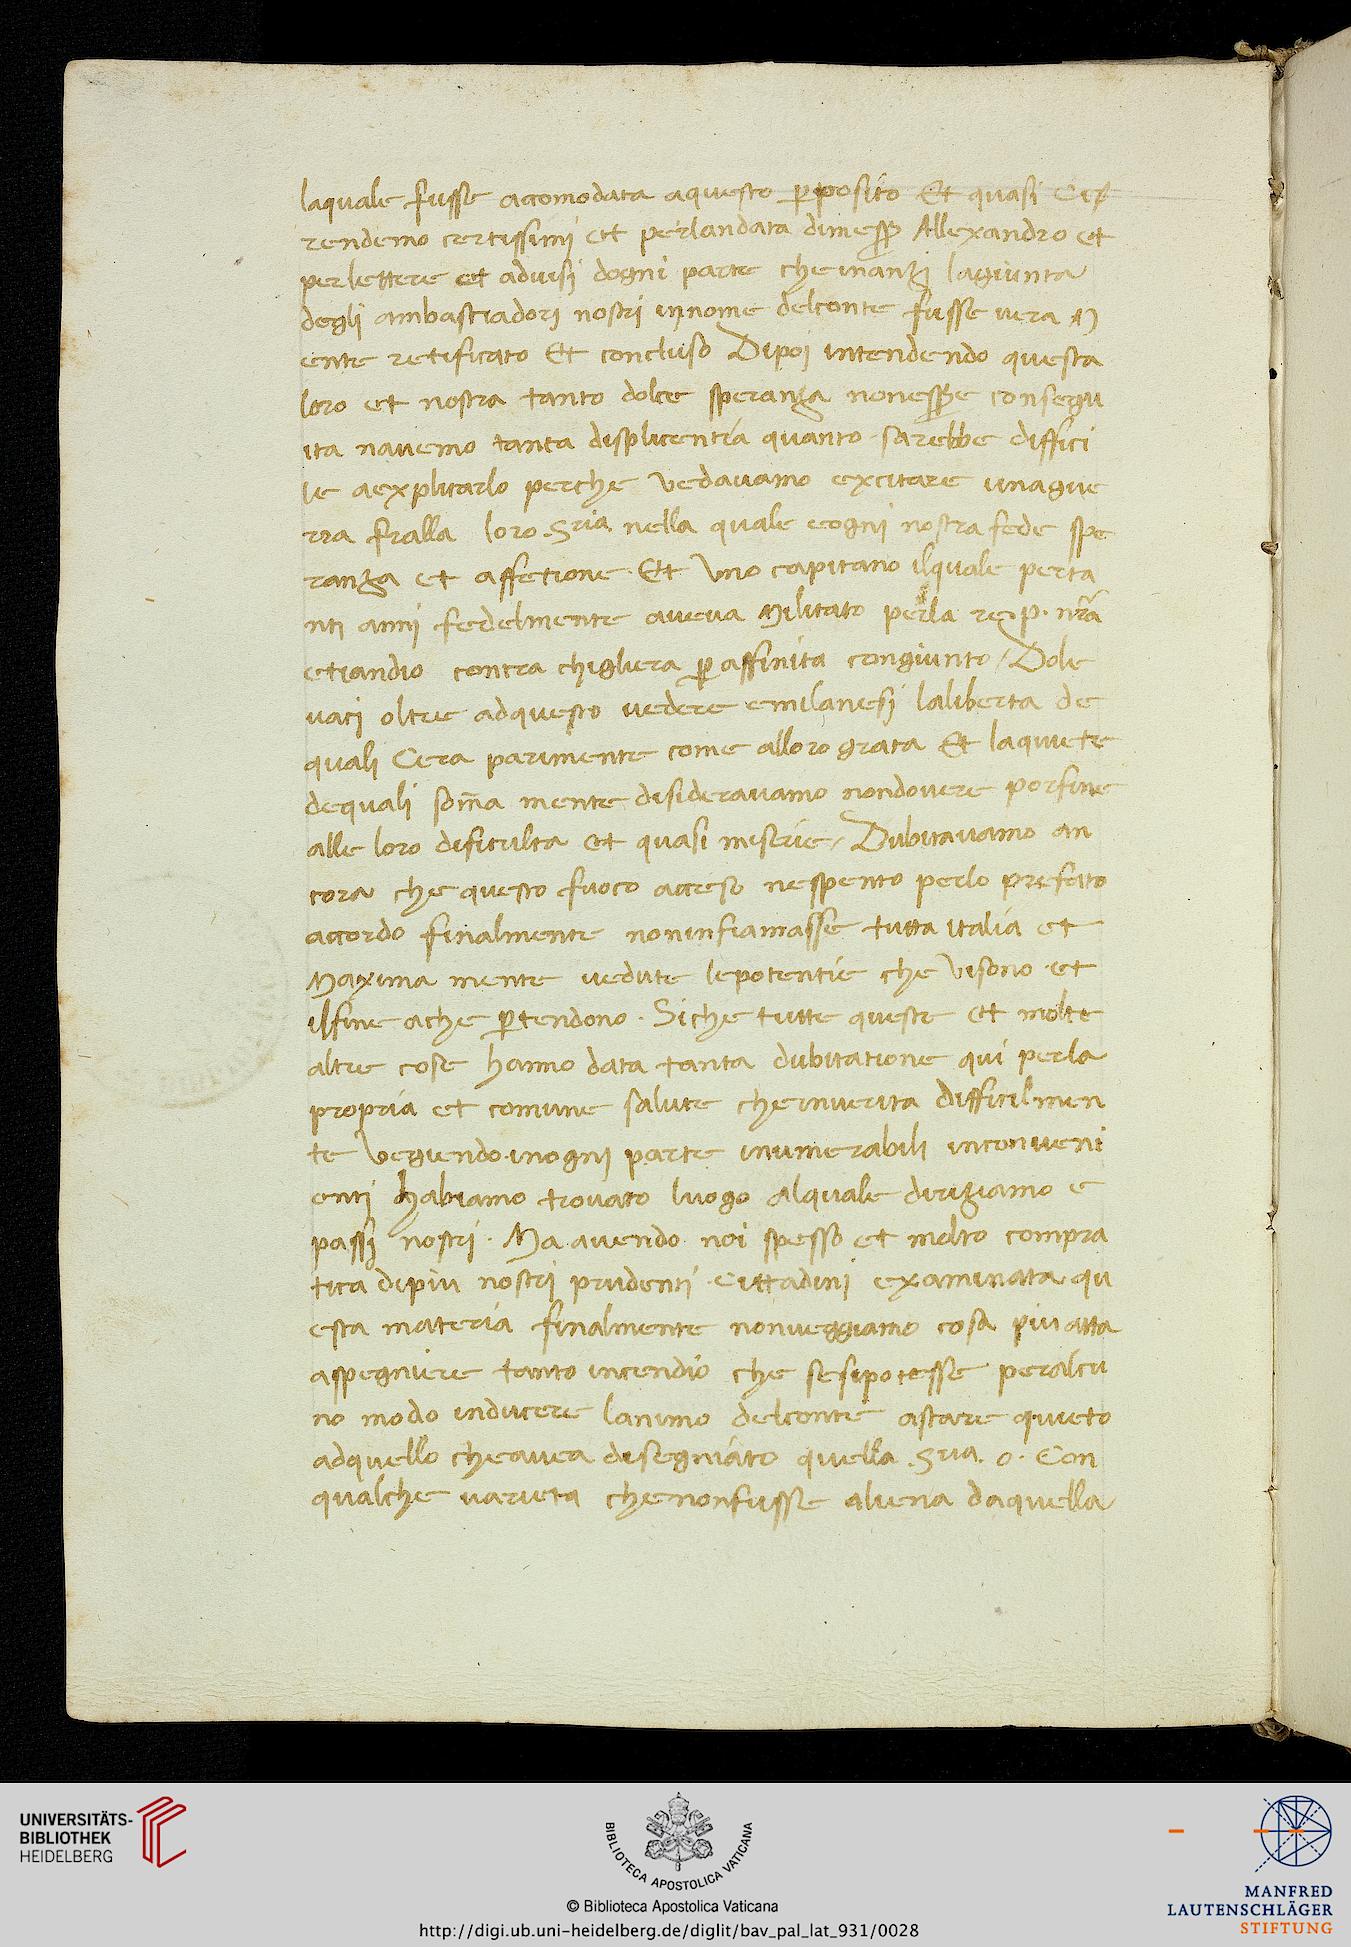 laquale fusse accomodata aquesto ꝑposito Et quasi Ci
rendemo certissimi ett perlandata dimess Allexandro et
perlettere et advisi dogni parte cheinanzi lagiunta
degli ambasciadori nostri innome delconte fusse vera m
ente retificato Et concluso Dipoi intendendo questa
loro et nostra tanto dolce speranza nonesse consegu
ita navemo tanta displicentia quanto sarebbe diffici
le aexplicarlo perche vedavamo excitare unague
rra fralla loro .Sria. nella quale eogni nostra fede spe
ranza et affetione. Et uno capitano ilquale perta
nti anni fedelmente aveva militato perla re.p. nrã
etiandio contra chigliera ꝑ affinita congiunto / Dole
vaci oltre adquesto vedere emilanesi laliberta de
quali Cera parimente come alloro grata Et laquiete
dequali som̃a mente disideravamo nondovere porfine
alle loro dificulta et quasi miserie / Dubitavamo an
cora che questo fuoco acceso nespento perlo prefato
accordo finalmente noninfiamasse tutta italia et
Maxima mente vedute lepotentie che visono et
ilfine ache ꝑtendono. Siche tutte queste et molte
altre cose hanno data tanta dubitatione qui perla
propria et comune salute cheinverita difficilmen
te vegiendo inogni parte inumerabili inconveni
enti habiamo trovato luogo alquale diriziamo e
passi nostri. Ma avendo noi spesso et molto compra
tica dipiu nostri prudenti Cittadini examinata qu
esta materia finalmente nonveggiamo cosa piu atta
aspegniere tanto incendio che sesipotesse peralcu
no modo inducere lanimo delconte astare quieto
adquello cheavea disegniato quella .Sria. o. Con
qualche varieta chenonfusse aliena daquella
UNIVERSITÄTS-
BIBLIOTHEK
HEIDELBERG
BIBLIOTECA APOSTOLICA VATICANA
© Biblioteca Apostolica Vaticana
http://digi.ub.uni-heidelberg.de/diglit/bav_pal_lat_931/0028
MANFRED
LAUTENSCHLÄGER
STIFTUNG